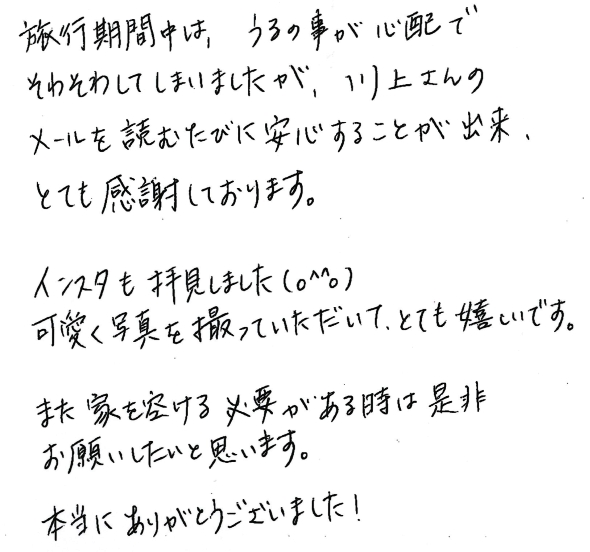 旅行期間中は、うるの事が心配で
そわそわしてしまいましたが、川上さんの
メールを読むたびに安心することが出来、
とても感謝しております。
インスタも拝見しました(o^^o)
可愛く写真を撮っていただいて、とても嬉しいです。
また家を空ける必要がある時は是非
お願いしたいと思います。
本当にありがとうございました!